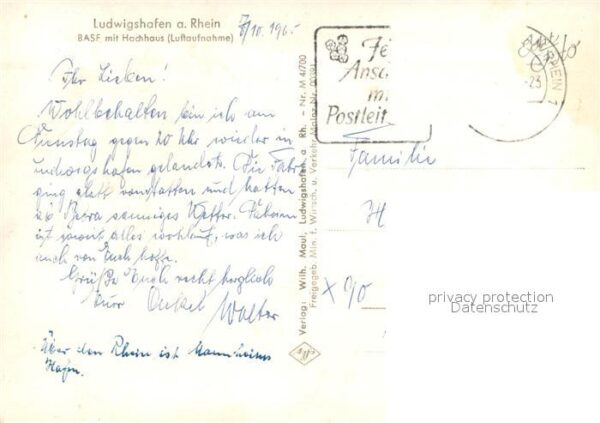 Ludwigshafen a. Rhein
BASF mit Hochhaus (Luftaufnahme)
7/10. 196
Ihr Lieben!
Wohlbehalten bin ich am
gegen 20 Uhr wieder in
Ludwigshafen gelandet. Die Fahrt
ging glatt vonstatten und hatten
sonniges Wetter. Daheim
ist soweit alles wohlauf, was ich
auch von Euch hoffe.
Grüße Euch recht herzlich
Euer Onkel Walter
Über den Rhein ist Mannheimer
Hafen.
Verlag: Wilh. Maul, Ludwigshafen a. Rh. - Nr. M 4/700
Freigegeb. Min. f. Wirtsch. u. Verkehr Mainz Nr.
Fe
Ansc
m
Postleit
RHEIN 1
-23
Familie
H
X 90
privacy protection
Datenschutz